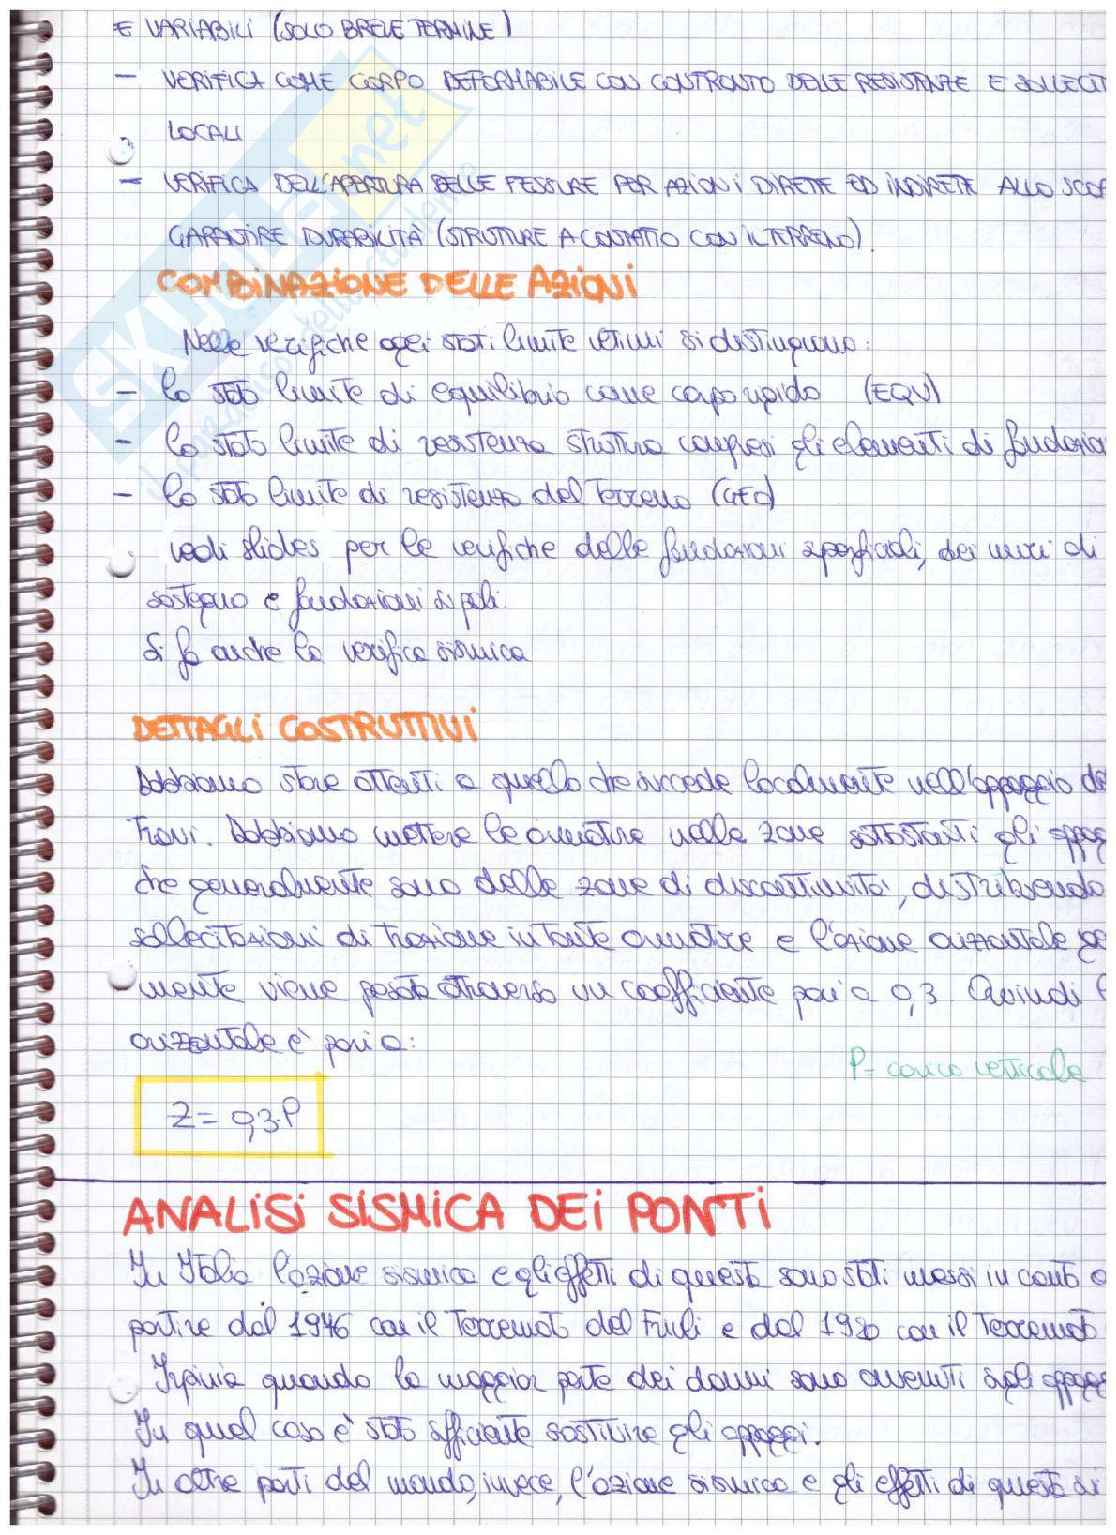 E VARIABILI (SOLO BREVE TERMINE)
- VERIFICA COME CORPO DEFORMABILE CON CONFRONTO DELLE RESISTENZE E SOLLECIT
LOCALI
- VERIFICA DELL'APERTURA DELLE FESSURE PER AZIONI DIRETTE ED INDIRETTE ALLO SCOP
GARANTIRE DURABILITÀ (STRUTTURE A CONTATTO CON IL TERRENO).
COMBINAZIONE DELLE AZIONI
Nelle verifiche agli stati limite ultimi si distinguono:
- lo stato limite di equilibrio come corpo rigido (EQU)
- lo stato limite di resistenza struttura compresi gli elementi di fondazio
- lo stato limite di resistenza del terreno (GEO)
vedi slides per le verifiche delle fondazioni superficiali, dei muri di
sostegno e fondazioni su pali.
Si fa anche la verifica sismica
DETTAGLI COSTRUTTIVI
Dobbiamo stare attenti a quello che succede localmente nell'appoggio de
travi. Dobbiamo mettere le armature nelle zone sottostanti gli appog
che generalmente sono delle zone di discontinuità, distribuendo
sollecitazioni di trazione in tante armature e l'azione orizzontale ge
mente viene pesata attraverso un coefficiente pari a 0,3 Quindi l
orizzontale è pari a:
P= carico verticale
Z= 0,3·P
ANALISI SISMICA DEI PONTI
In Italia l'azione sismica e gli effetti di questa sono stati messi in conto a
partire dal 1976 con il terremoto del Friuli e dal 1980 con il terremoto
Irpinia quando la maggior parte dei danni sono avvenuti sugli appog
In quel caso è stato sufficiente sostituire gli appoggi.
In altre parti del mondo, invece, l'azione sismica e gli effetti di questa si